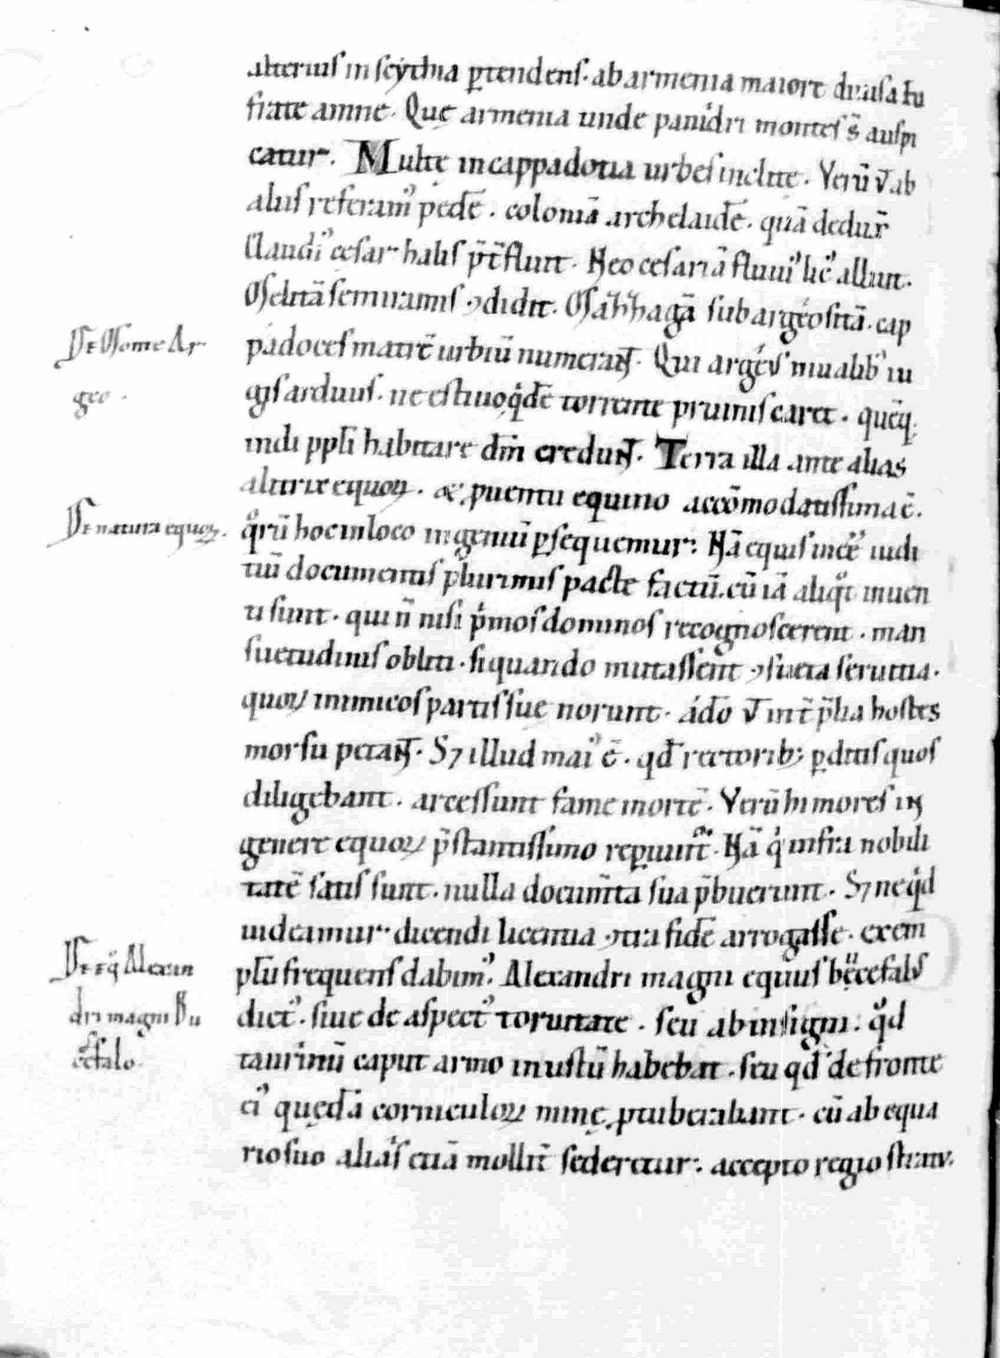 alterius in scythia ꝑtendens · ab armenia maiore diuisa Eu
frate amne · Quę armenia unde panidri montes s̄ auspi
catur · Multe in cappadotia urbes inclite · Verū v̄ ab
aliis referamꝰ pedē · coloniā archelaidē · quā dedux̄
Claudiꝰ cesar halis p̄t̄fluit · Neocesariā fluuiꝰ licꝰ alluit ·
Melitā semiramis ꝯdidit · Mazacā sub argeo sitā · cap
padoces matrē urbiū numerant · Qui argeus niualibꝰ iu
gis arduus · ne estiuo qͥdē torrente pruinis caret · quēq;
indi ppl̄i habitare dm̄ credunt · Terra illa ante alias
altrix equoꝝ · & ꝓuentu equino accōmodatissima ē ·
qͦrū hoc in loco ingeniū ꝑsequemur : Nā equis inēē iudi
tiū documentis plurimis pacte factū · cū iā aliqͦt inuen
ti sunt · qui n̄ nisi pͥmos domnos recognoscerent · man
suetudinis obliti · siquando mutassent ꝯsueta seruitia ·
quoꝝ inimicos partis sue norunt · ádō v̄ int̄ p̄lia hostes
morsu petant · Sꝫ illud maiꝰ ē · qđ rectoribꝫ ꝑditis quos
diligebant · arcessunt fame mortē · Verū hi mores in
genere equoꝝ p̄stantissimo reperiunt̄ · Nā qͥ infra nobili
tatē satis sunt · nulla docum̄ta sua p̄buerunt · Sꝫ ne qͥd
uideamur dicendi licentia ꝯtra fidē arrogasse · exem
plū frequens dabimꝰ · Alexandri magni equus bucefalus
dictꝰ · siue de aspectꝰ toruitate · seu ab insigni · qͦd
taurinū caput armo inustū habebat · seu qđ de fronte
eiꝰ quędā corniculoꝝ minę ꝓtuberabant · cū ab equa
rio suo aliás etiā mollit̄ sederetur : accepto regio stratu ·
De Mome Ar
geo ·
De natura equoꝝ ·
De eq̄ Alexan
dri magni Bu
cefalo ·